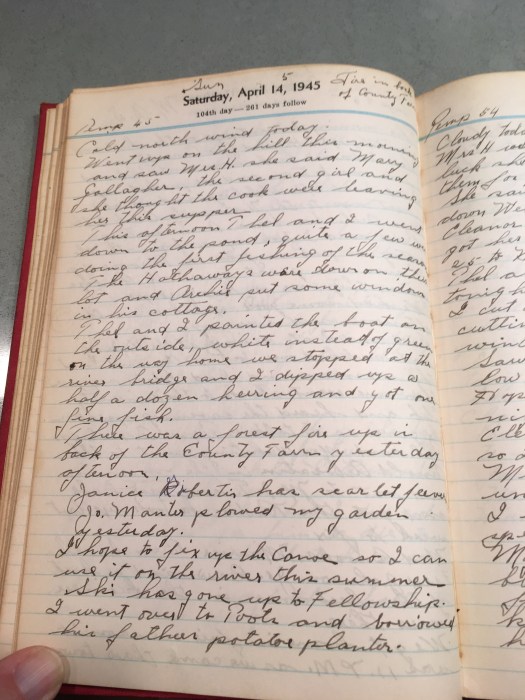 Sun 5
Saturday, April 14, 1945
Fire in back
of County Farm
104th day—261 days follow
Temp 45
Cold north wind today.
Went up on the hill this morning
and saw Mrs H. she said Mary
Gallagher, the second girl and
she thought the cook were leaving
her this supper.
This afternoon Thel and I went
down to the pond, quite a few were
doing the first fishing of the season
The Hathaways were down on their
lot and Archie put some windows
in his cottage.
Thel and I painted the boat on
the outside, white instead of green
on the way home we stopped at the
river bridge and I dipped up a
half a dozen herring and got one
fine fish.
There was a forest fire up in
back of the County Farm yesterday
afternoon.
Janice Robertis has scarlet fever
Jo. Manter plowed my garden
yesterday.
I hope to fix up the Canoe so I can
use it on the river this summer
Ski has gone up to Fellowship.
I went over to Pools and borrowed
his father potatoe planter.
Temp 54
Cloudy toda
Mrs H
luck sh
them for
She sa
down We
Eleanor
got her
Thel a
tonigh
I cut
cutti
wind
Saw
low